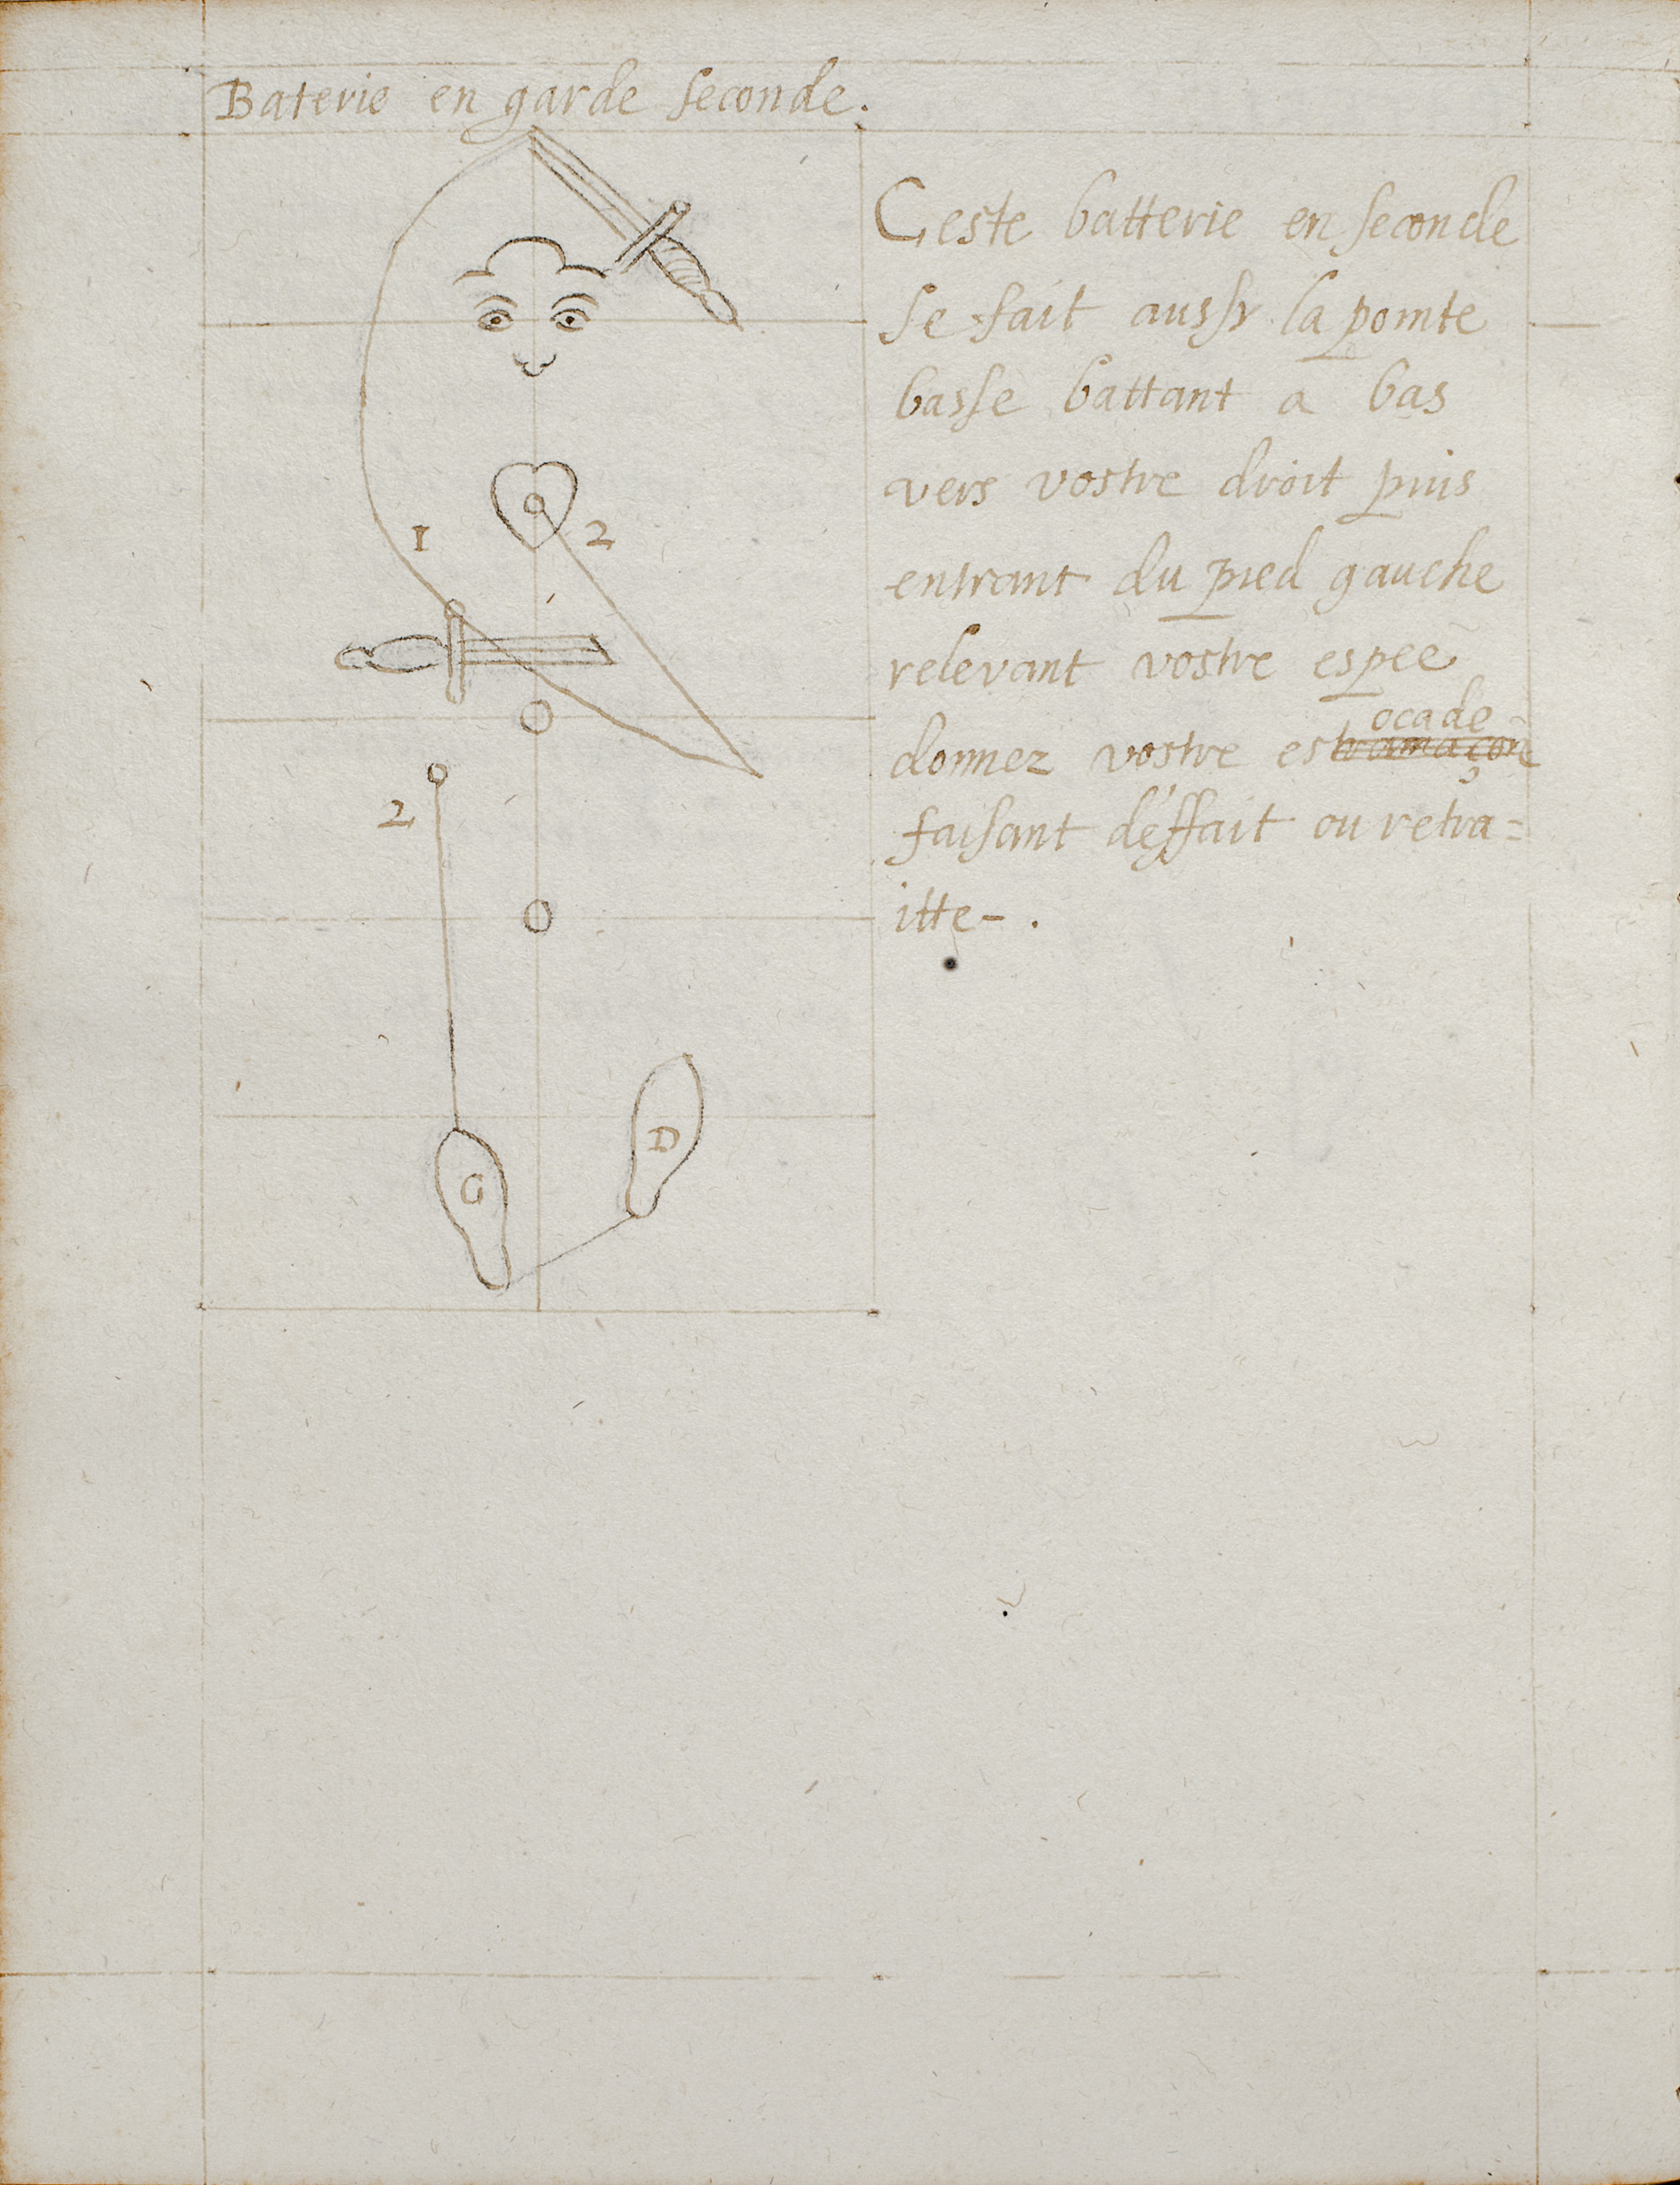 Baterie en garde seconde.
Ceste batterie en seconde
se fait aussy la pointe
basse battant a bas
1
2
vers vostre droit puis
entrant du pied gauche
relevant vostre espee
ocade
donnez vostre estramaçon
2
faisant déffait ou retra=
itte-.
D
G